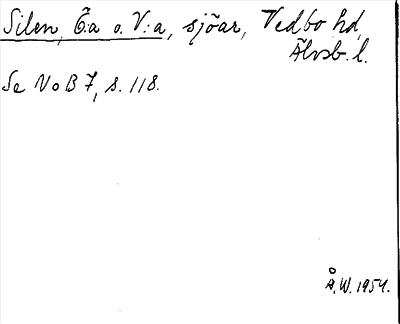 Silen, Ö:a o. V:a, sjöar, Vedbo hd,
Älvsb. l.
Se NoB 7, s. 118.
Å.W. 1954.